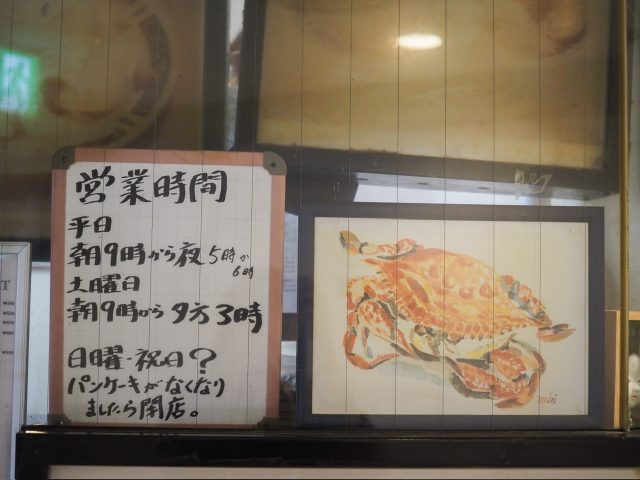 営業時間
平日
朝9時から夜5時か
6時
土曜日
朝9時から夕方3時
日曜・祝日?
パンケーキがなくなり
ましたら閉店。